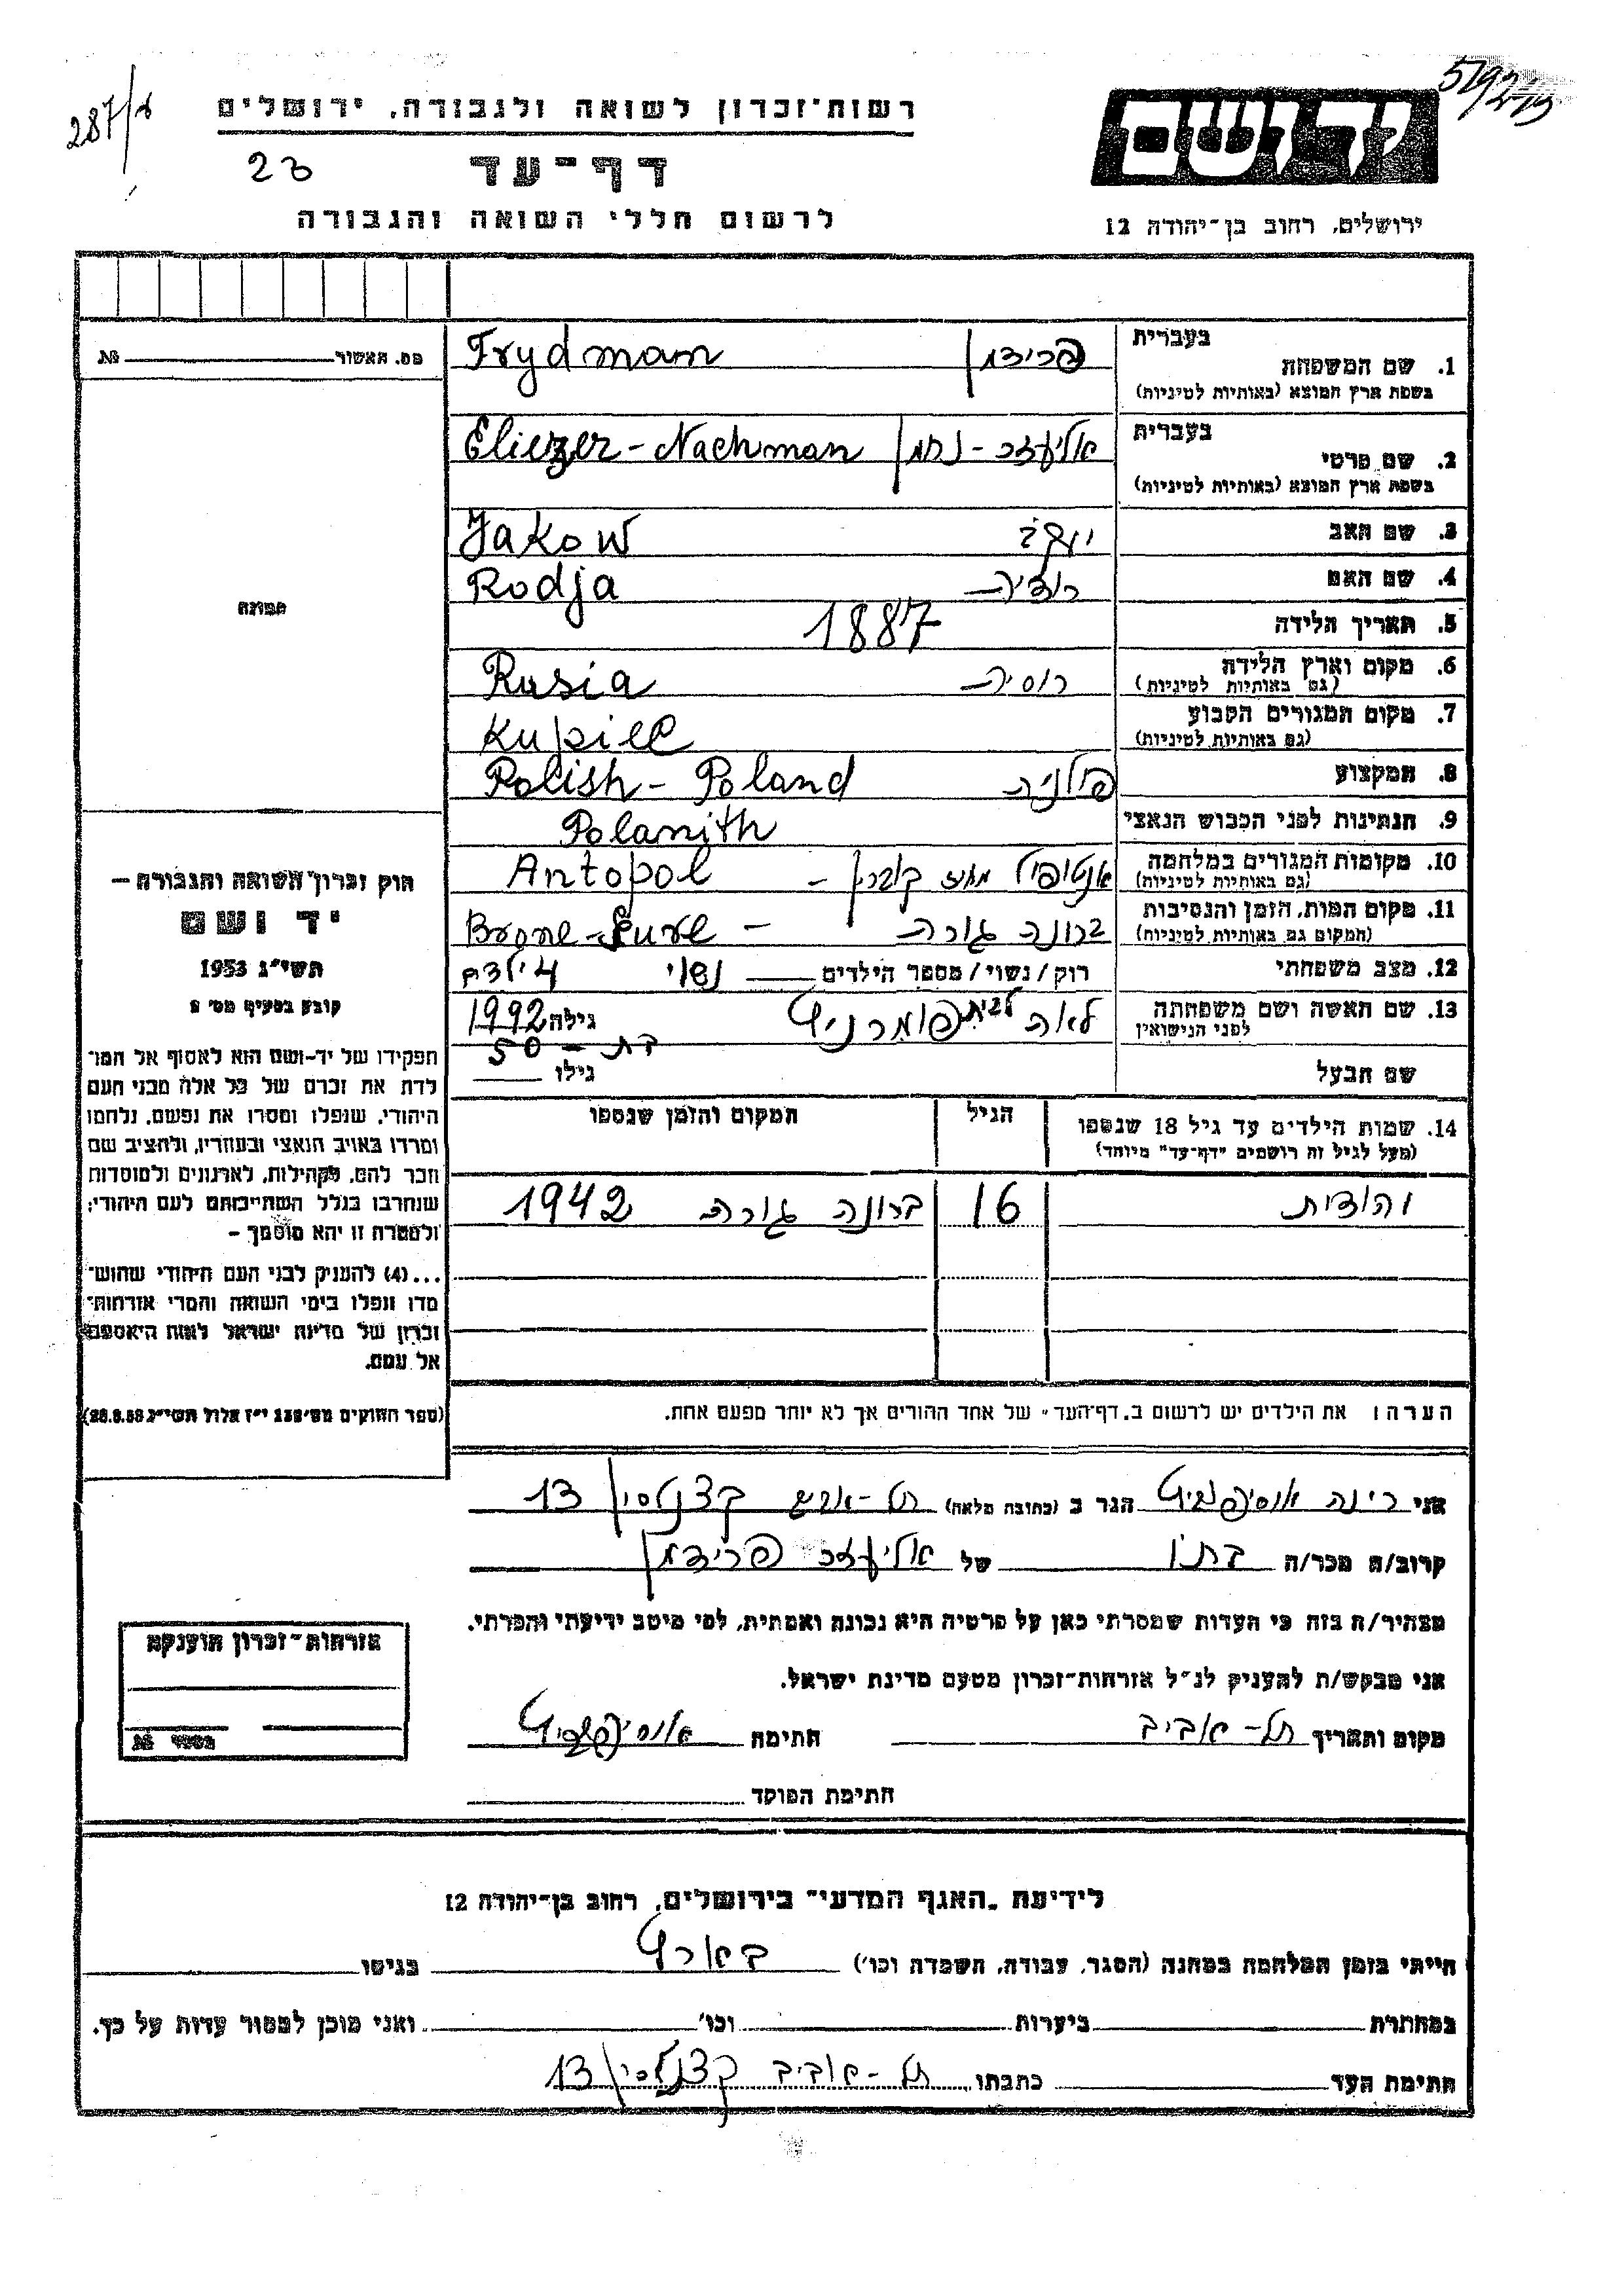 287/א
רשות־זכרון לשואה ולגבורה, ירושלים
23
דף־עד
לרשום חללי השואה והגבורה
יד ושם
ירושלים, רחוב בן־יהודה 12
מס. האשור № 
1. שם המשפחה
בעברית
(בשפת ארץ המוצא (באותיות לטיניות
פרידמן Frydman
2. שם פרטי
בעברית
(בשפת ארץ המוצא (באותיות לטיניות
אליעזר - נחמן Eliezer-Nachman
3. שם האב יעקב Jakow
4. שם האם רודיה Rodja
5. תאריך הלידה 1887
6. מקום וארץ הלידה רוסיה Rusia
(גם באותיות לטיניות)
7. מקום המגורים הקבוע Kupiec
(גם באותיות לטיניות)
8. המקצוע פולניה Polish - Poland
9. הנתינות לפני הכבוש הנאצי Polanith
10. מקומות המגורים במלחמה אנטופול מחוז קוברין - Antopol
(גם באותיות לטיניות)
11. מקום המות, הזמן והנסיבות ברונה גורה -
(המקום גם באותיות לטיניות)
12. מצב משפחתי רוק/נשוי/מספר הילדים נשוי 4 ילדים
13. שם האשה ושם משפחתה לאה לבית גילה 1992
לפני הנישואין
בת - 50
שם הבעל גילו
14. שמות הילדים עד גיל 18 שנספו הגיל המקום והזמן שנספו
(מעל לגיל זה רושמים "דף־עד" מיוחד)
יהודית 16 ברונה גורה 1942
הערה: את הילדים יש לרשום ב"דף־העד" של אחד ההורים אך לא יותר מפעם אחת.
תמונה
חוק זכרון השואה והגבורה —
יד ושם
תשי"ג 1953
קובע בסעיף מס' 2
תפקידו של יד־ושם הוא לאסוף אל המו־
לדת את זכרם של כל אלה מבני העם
היהודי, שנפלו ומסרו את נפשם, נלחמו
ומרדו באויב הנאצי ובעוזריו, ולהציב שם
וזכר להם, לקהילות, לארגונים ולמוסדות
שנחרבו בגלל השתייכותם לעם היהודי;
ולמטרה זו יהא מוסמך —
...(4) להעניק לבני העם היהודי שהוש־
מדו ונפלו בימי השואה והמרי אזרחות־
זכרון של מדינת ישראל לאות היאספם
אל עמם.
(ספר החוקים מס' 132 י"ז אלול תשי"ג 28.8.53)
אני רינה הגר ב (כתובת מלאה) תל-אביב קצנלסון 13
קרוב/ה מכר/ה בתו של אליעזר פרידמן
מצהיר/ה בזה כי העדות שמסרתי כאן על פרטיה היא נכונה ואמתית, לפי מיטב ידיעתי והכרתי.
אני מבקש/ת להעניק לנ"ל אזרחות־זכרון מטעם מדינת ישראל.
מקום ותאריך תל-אביב חתימה
חתימת הפוקד
אזרחות־זכרון הוענקה
לידיעת "האגף המדעי" בירושלים, רחוב בן־יהודה 12
הייתי בזמן המלחמה במחנה (הסגר, עבודה, השמדה וכו') בארץ בגיטו
במחתרת ביערות וכו' ואני מוכן למסור עדות על כך.
חתימת העד כתבתו תל-אביב קצנלסון 13